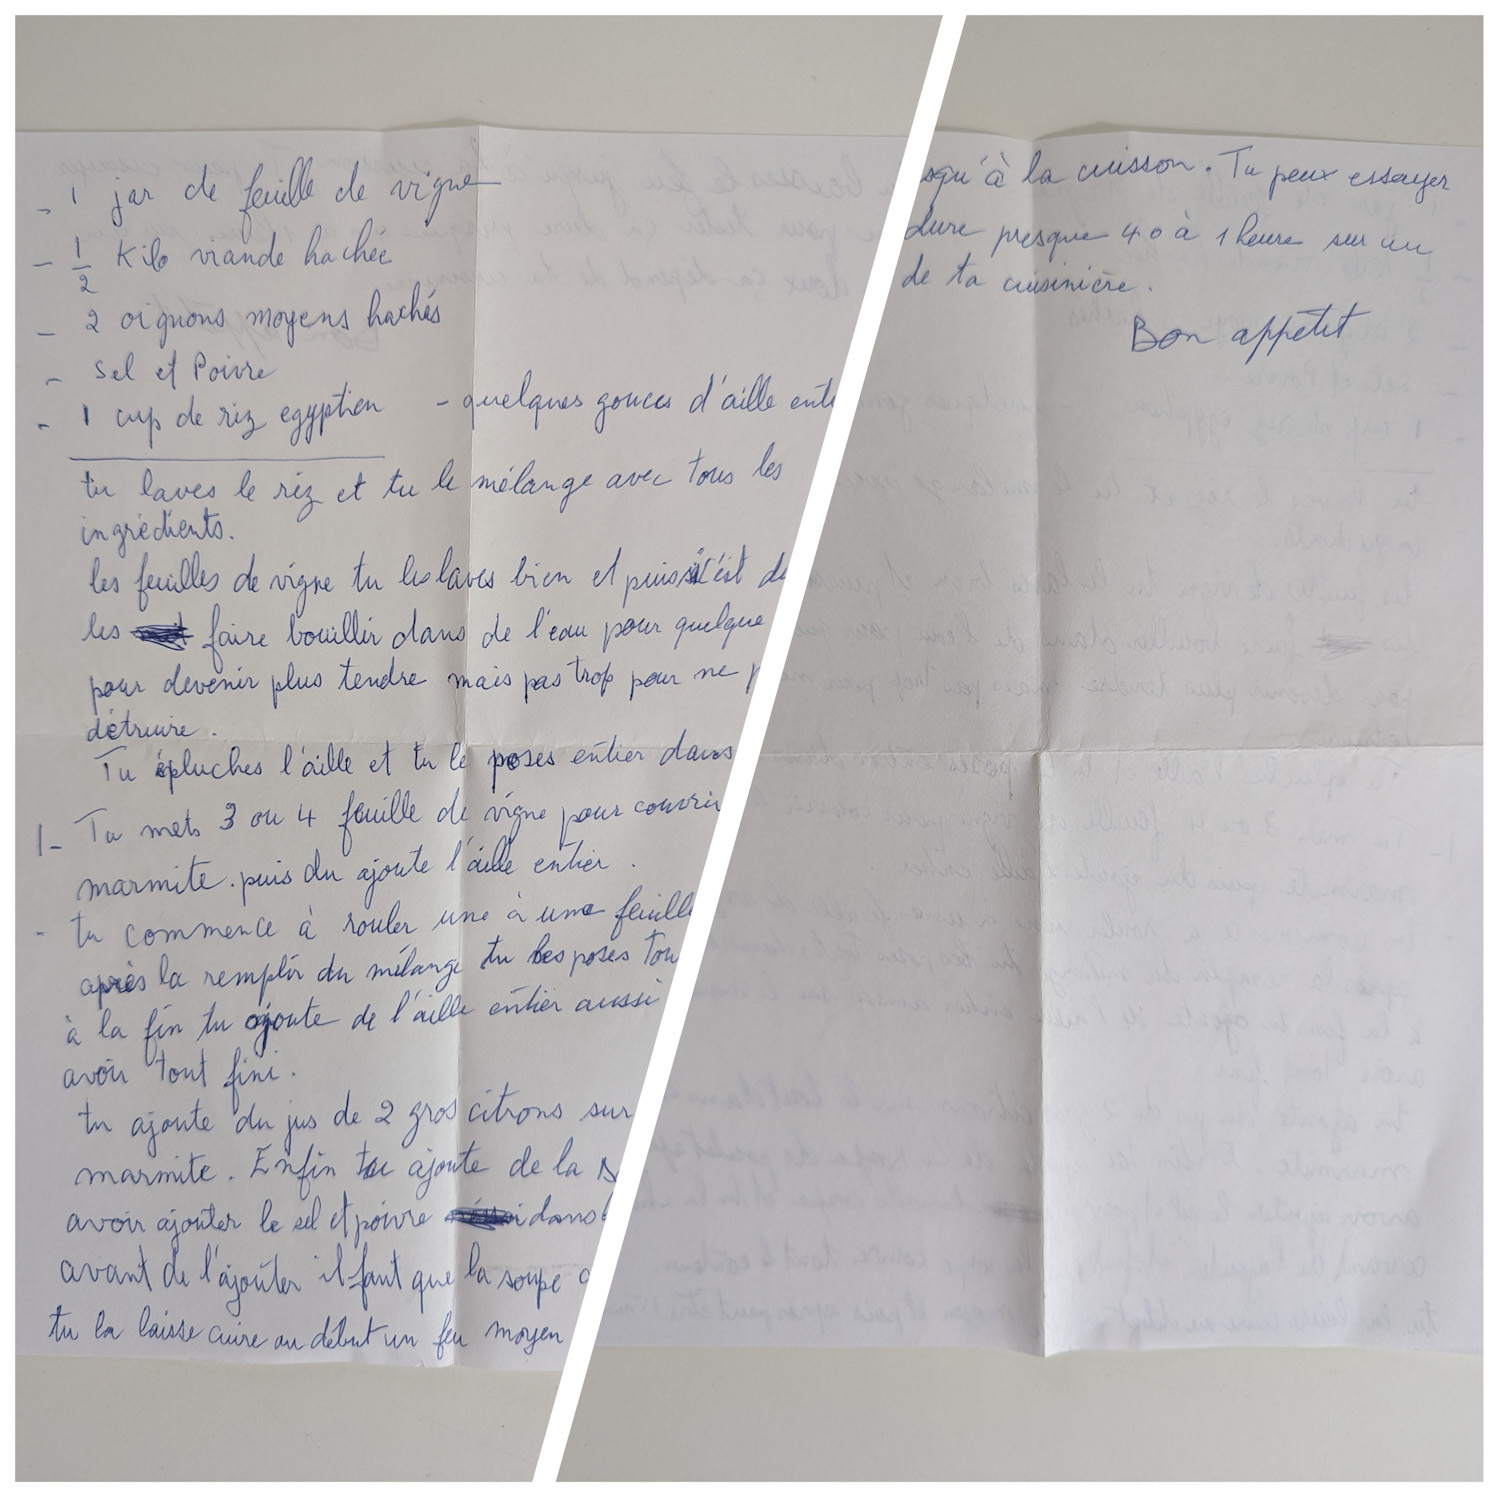 - 1 jar de feuille de vigne
- 1/2 Kilo viande hachée
- 2 oignons moyens hachés
- Sel et Poivre
- 1 cup de riz egyptien - quelques gouces d'aille
tu laves le riz et tu le mélange avec tous les
ingrédients.
les feuilles de vigne tu les laves bien et puis
les faire bouillir dans de l'eau pour quelque
pour devenir plus tendre mais pas trop pour ne
détruire.
Tu épluches l'aille et tu le poses entier dans
1- Tu mets 3 ou 4 feuille de vigne pour couvrir
marmite. puis du ajoute l'aille entier.
- tu commence à rouler une à une feuille
après la remplir du mélange tu les poses
à la fin tu ajoute de l'aille entier aussi
avoir tout fini.
tu ajoute du jus de 2 gros citrons sur
marmite. Enfin tu ajoute de la
avoir ajouter le sel et poivre dans
avant de l'ajouter il faut que la soupe
tu la laisse cuire au début un feu moyen
à la cuisson. Tu peux essayer
dure presque 40 à 1 heure sur un
de ta cuisinière.
Bon appétit